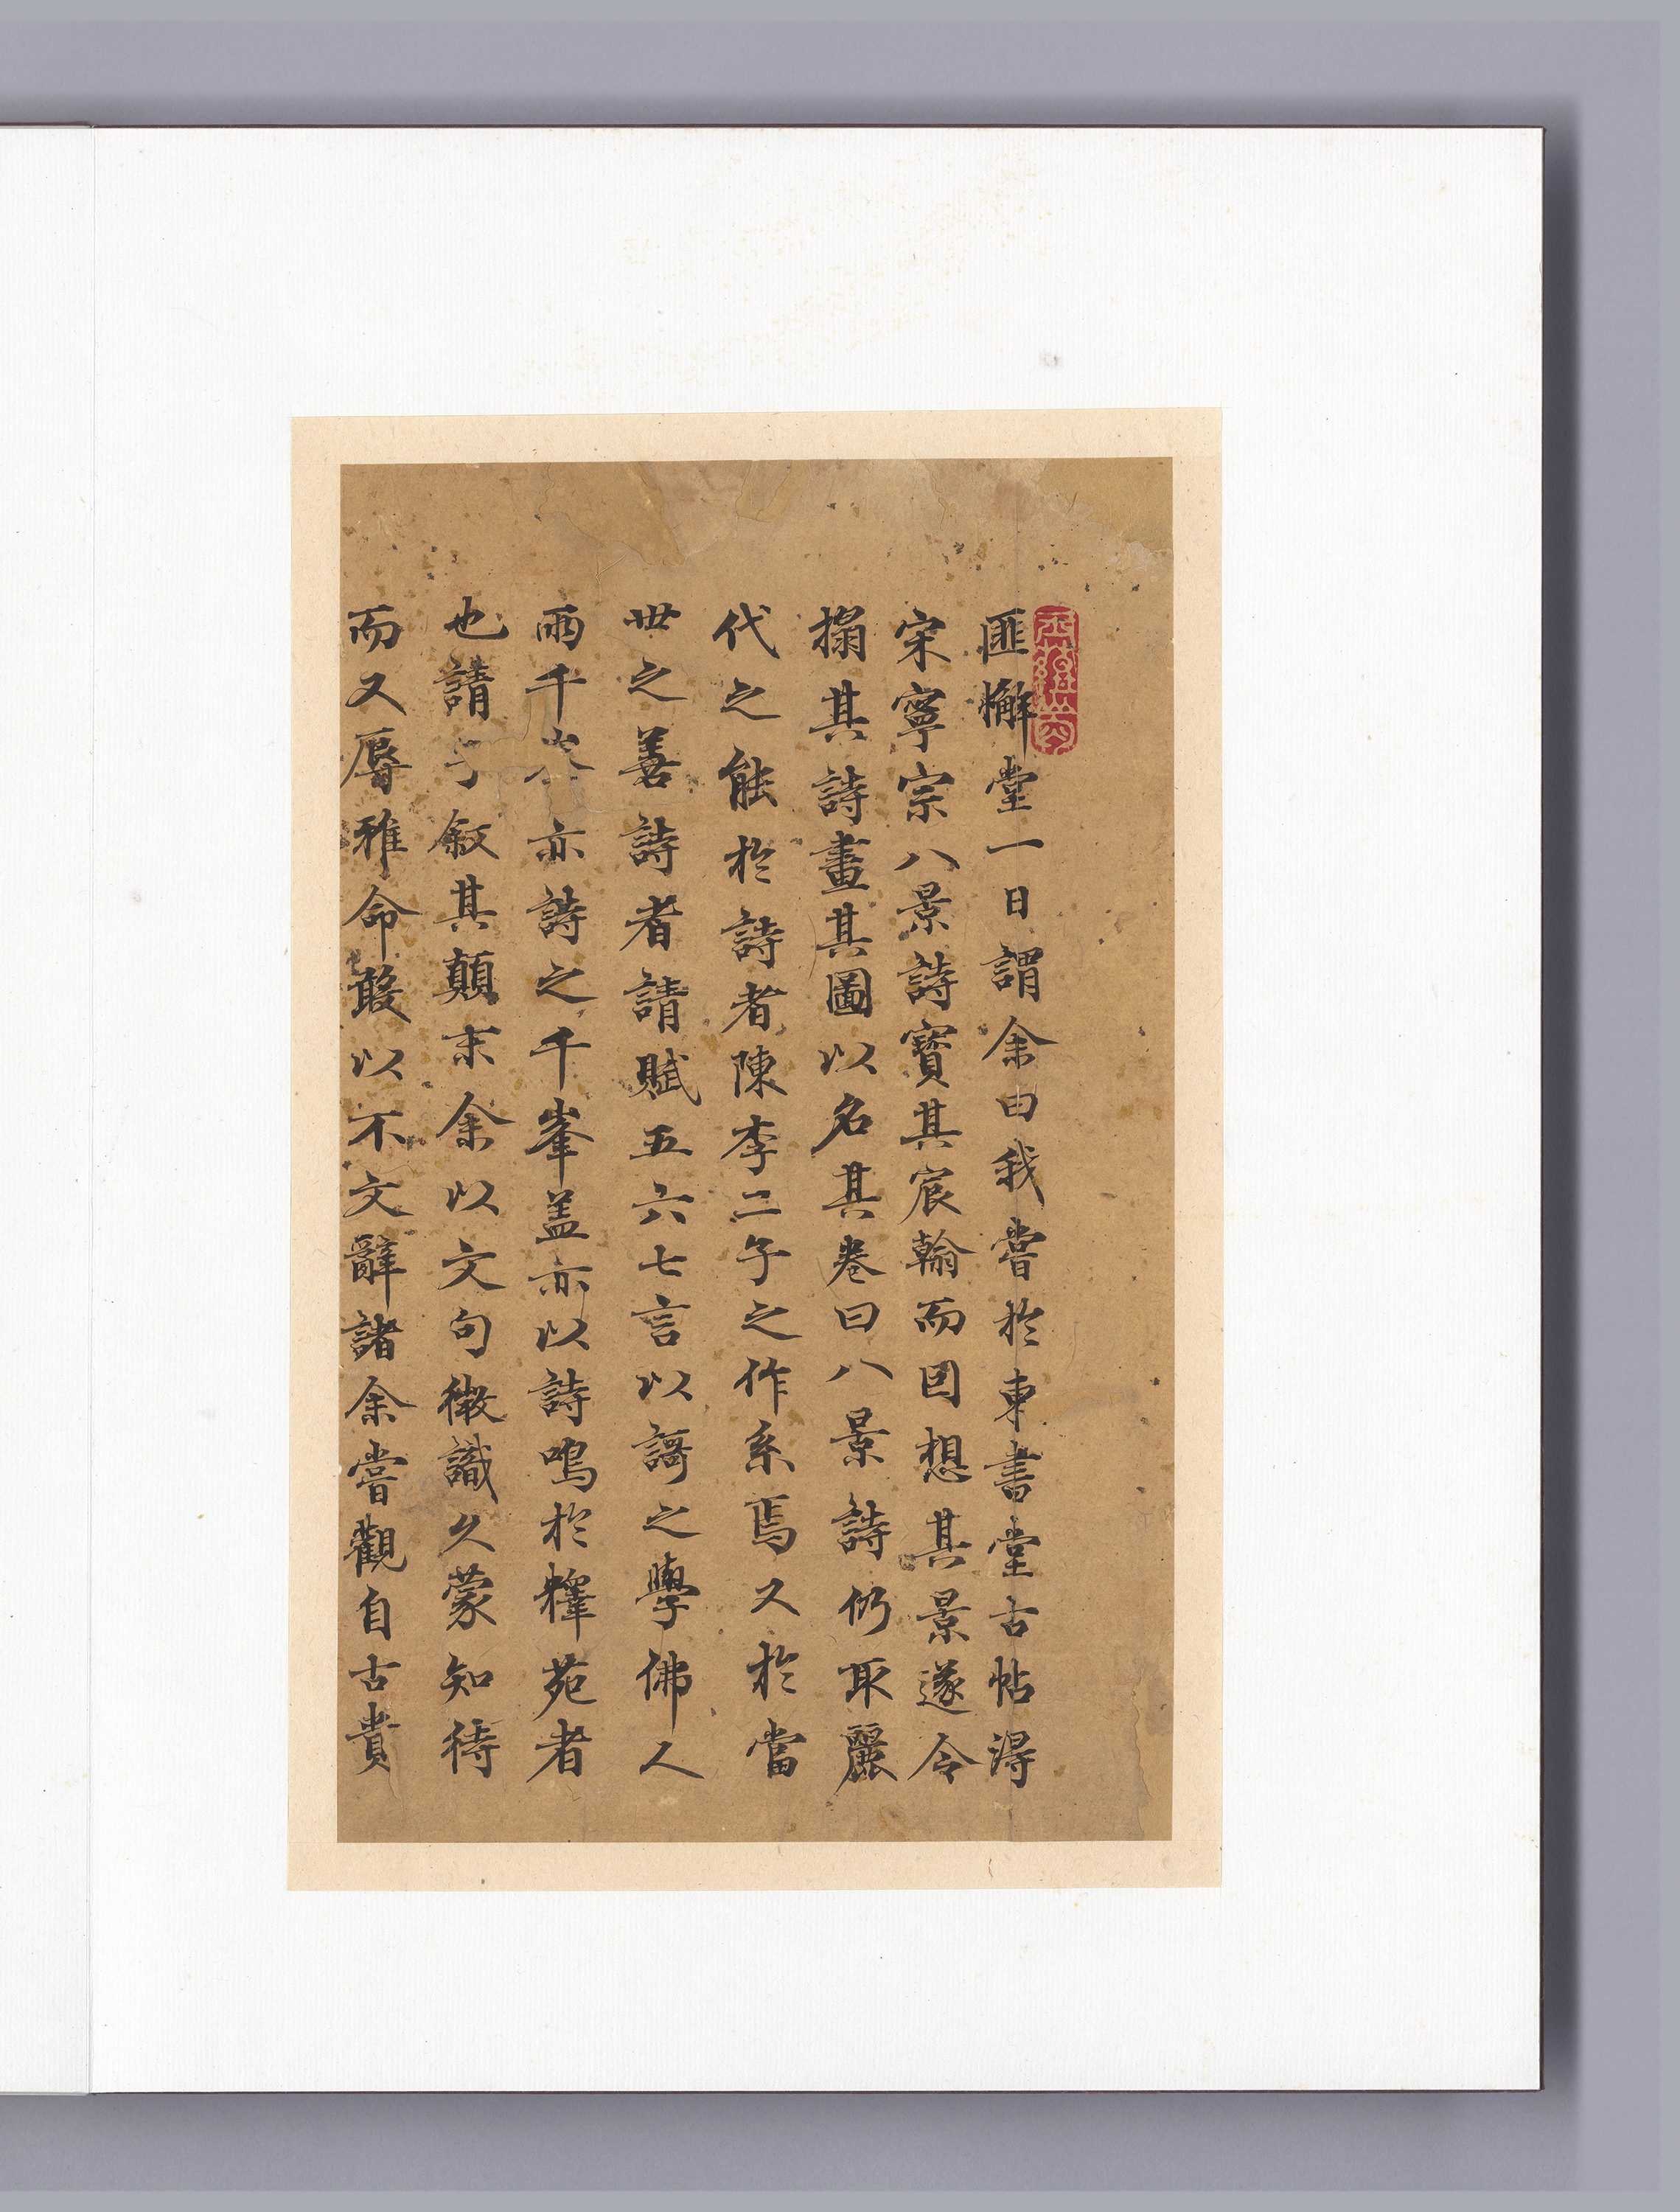 匪懈堂一日謂余曰我嘗於東書堂古帖淂
宋寧宗八景詩寶其宸翰而因想其景遂令
搨其詩畫其圖以名其卷曰八景詩仍取麗
代之能於詩者陳李二子之作系焉又於當
世之善詩者請賦五六七言以謌之學佛人
雨千峯亦詩之千峯盖亦以詩鳴於釋苑者
也請予叙其顛末余以文句徵識久蒙知待
而又辱雅命敢以不文辭諸余嘗觀自古貴